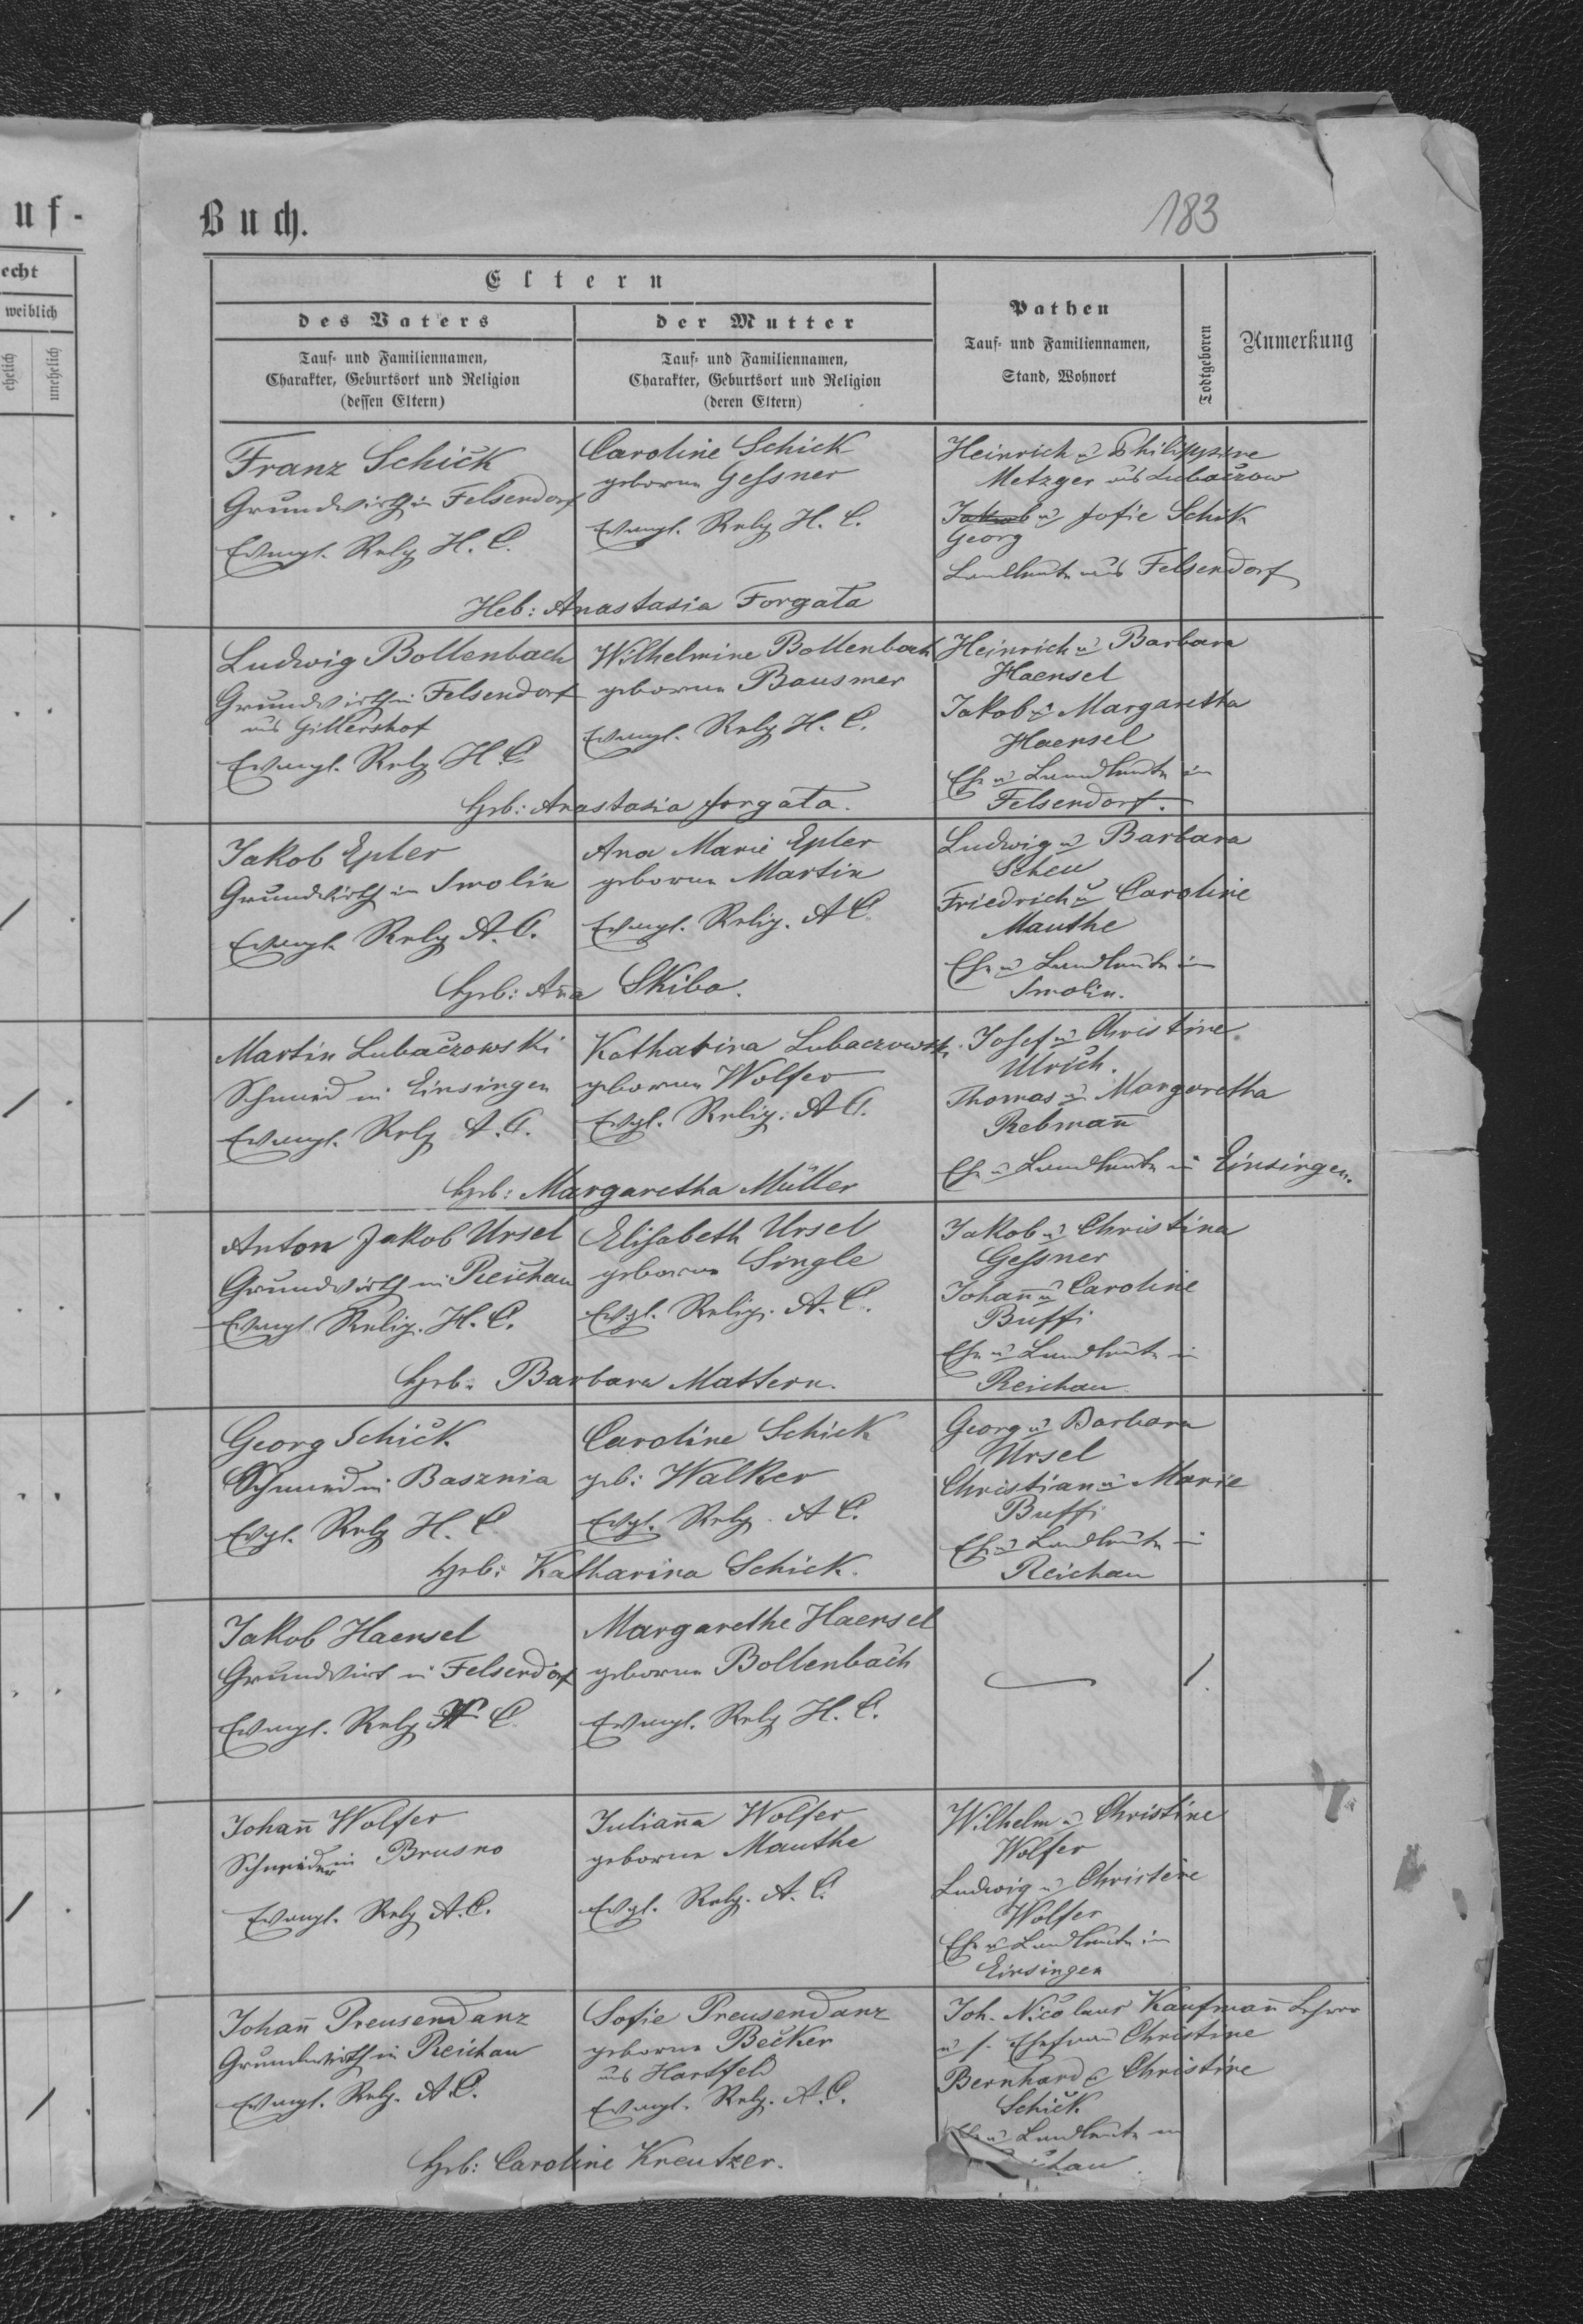 uf-
Buch.
183
echt
weiblich
ehelich
unehelich
Eltern
des Vaters
der Mutter
Tauf- und Familiennamen,
Charakter, Geburtsort und Religion
(dessen Eltern)
Tauf- und Familiennamen,
Charakter, Geburtsort und Religion
(deren Eltern)
Pathen
Tauf- und Familiennamen,
Stand, Wohnort
Todtgeboren
Anmerkung
Franz Schick
Grundwirth in Felsendorf
Evangl. Relg H. C.
Caroline Schick
geborne Gessner
Evangl. Relg H. C.
Heinrich u Philippine
Metzger aus Lubaczow
Jakob u Sofie Schik
Georg
Landleute aus Felsendorf
Heb: Anastasia Forgata
Ludwig Bollenbach
Grundwirth in Felsendorf
aus Gillershof
Evangl. Relg H. C.
Wilhelmine Bollenbach
geborne Bausmer
Evangl. Relg H. C.
Heinrich u Barbara
Haensel
Jakob u Margaretha
Haensel
Ehe u Landleute in
Felsendorf.
Heb: Anastasia Forgata.
Jakob Epler
Grundwirth in Smolin
Evangl. Relg A. C.
Ana Marie Epler
geborne Martin
Evangl. Relig. A C.
Ludwig u Barbara
Scheu
Friedrich u Caroline
Manthe
Ehe u Landleute in
Smolin.
Heb: Ana Skiba.
Martin Lubaczowski
Schmid in Einsingen
Evangl. Relg A. C.
Katharina Lubaczowsk.
geborne Wolfer
Evgl. Relig. A C.
Josef u Christine
Ulrich.
Thomas u Margaretha
Rebmann
Ehe u Landleute in Einsingen.
Heb: Margaretha Müller
Anton Jakob Ursel
Grundwirth in Reichau
Evangl Relig. H. C.
Elisabeth Ursel
geborne Single
Evgl. Relig. A. C.
Jakob u Christina
Gessner
Johann u Caroline
Buffi
Ehe u Landleute in
Reichau
Heb. Barbara Mattern.
Georg Schick
Schmid in Basznia
Evgl. Relg H. C.
Caroline Schick
geb: Walker
Evgl. Relg. A C.
Georg u Barbara
Ursel
Christian u Marie
Buffi
Ehe u Landleute in
Reichau
Heb: Katharina Schick.
Jakob Haensel
Grundwirt in Felsendorf
Evangl. Relg H C.
Margarethe Haensel
geborne Bollenbach
Evangl. Relg H. C.
Johann Wolfer
Schneider in Brusno
Evangl. Relg A. C.
Julianna Wolfer
geborne Manthe
Evgl. Relg. A. C.
Wilhelm u Christine
Wolfer
Ludwig u Christine
Wolfer
Ehe u Landleute in
Einsingen
Johann Preusendanz
Grundwirth in Reichau
Evangl. Relg. A C.
Sofie Preusendanz
geborne Becker
aus Hartfeld
Evangl. Relg. A. C.
Joh. Nicolaus Kaufmann Lehrer
u s. Ehefrau Christine
Bernhard & Christine
Schick
u Landleute in
Heb: Caroline Kreutzer.